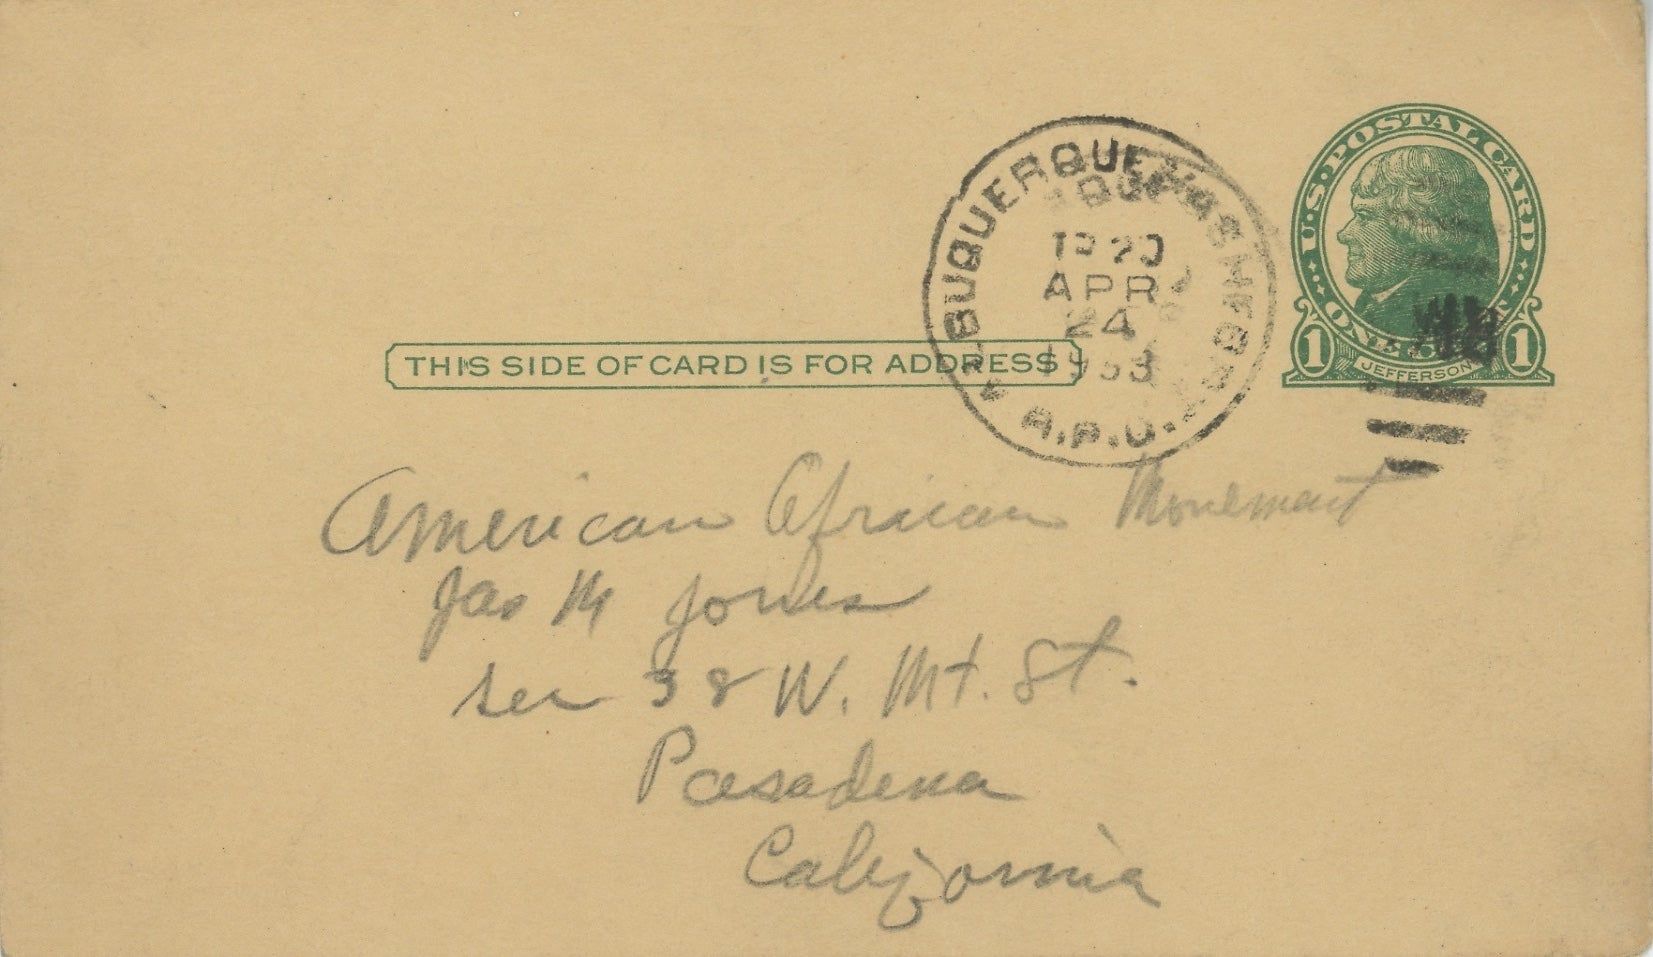 U.S. POSTAL CARD
ONE
1 1
JEFFERSON
ALBUQUERQUE & ASHFORK
TR 20
APR
24
1953
R.P.O.
THIS SIDE OF CARD IS FOR ADDRESS
American African Movement
Jas M Jones
sec 38 W. Mt. St.
Pasadena
California